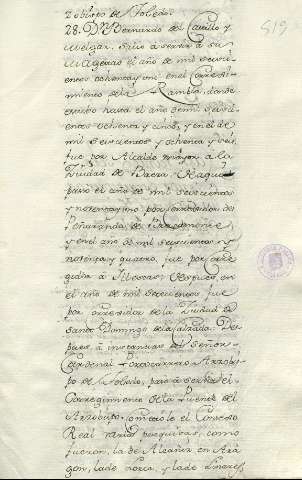 519
Zobispo de Toledo.
28. Dn Bernardo del Carrillo y
Melgar. Salio à servir à su
Magestad el año de mil seiscientos
ochenta y uno en el Corregi
miento de la Rambla, donde
estubo hasta el año de mil seiscientos
ochenta y cinco, y en el de
mil seiscientos y ochenta y seis
fue por Alcalde mayor a la
Ciudad de Baeza. de aqui
paso el año de mil seiscientos
y noventa y uno por corregidor de
Peñaranda de Bracamonte,
y en el año de mil seiscientos y
noventa y quatro, fue por corre
gidor à Illescas: despues, en
el año de mil setecientos fue
por corregidor de la Ciudad de
santo Domingo de la Calzada. Des
pues à instancias del Señor
Cardenal Portocarrero Arzobis
po de Toledo, paso à servir el
Corregimiento de la Puente del
Arzobispo. cometiole el Consejo
Real varias pesquisas, como
fueron, la de Alcañiz en Ara
gon, la de Lorca, y la de Linares